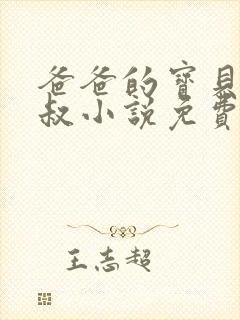 爸爸的寶貝
叔小説免費
王志超